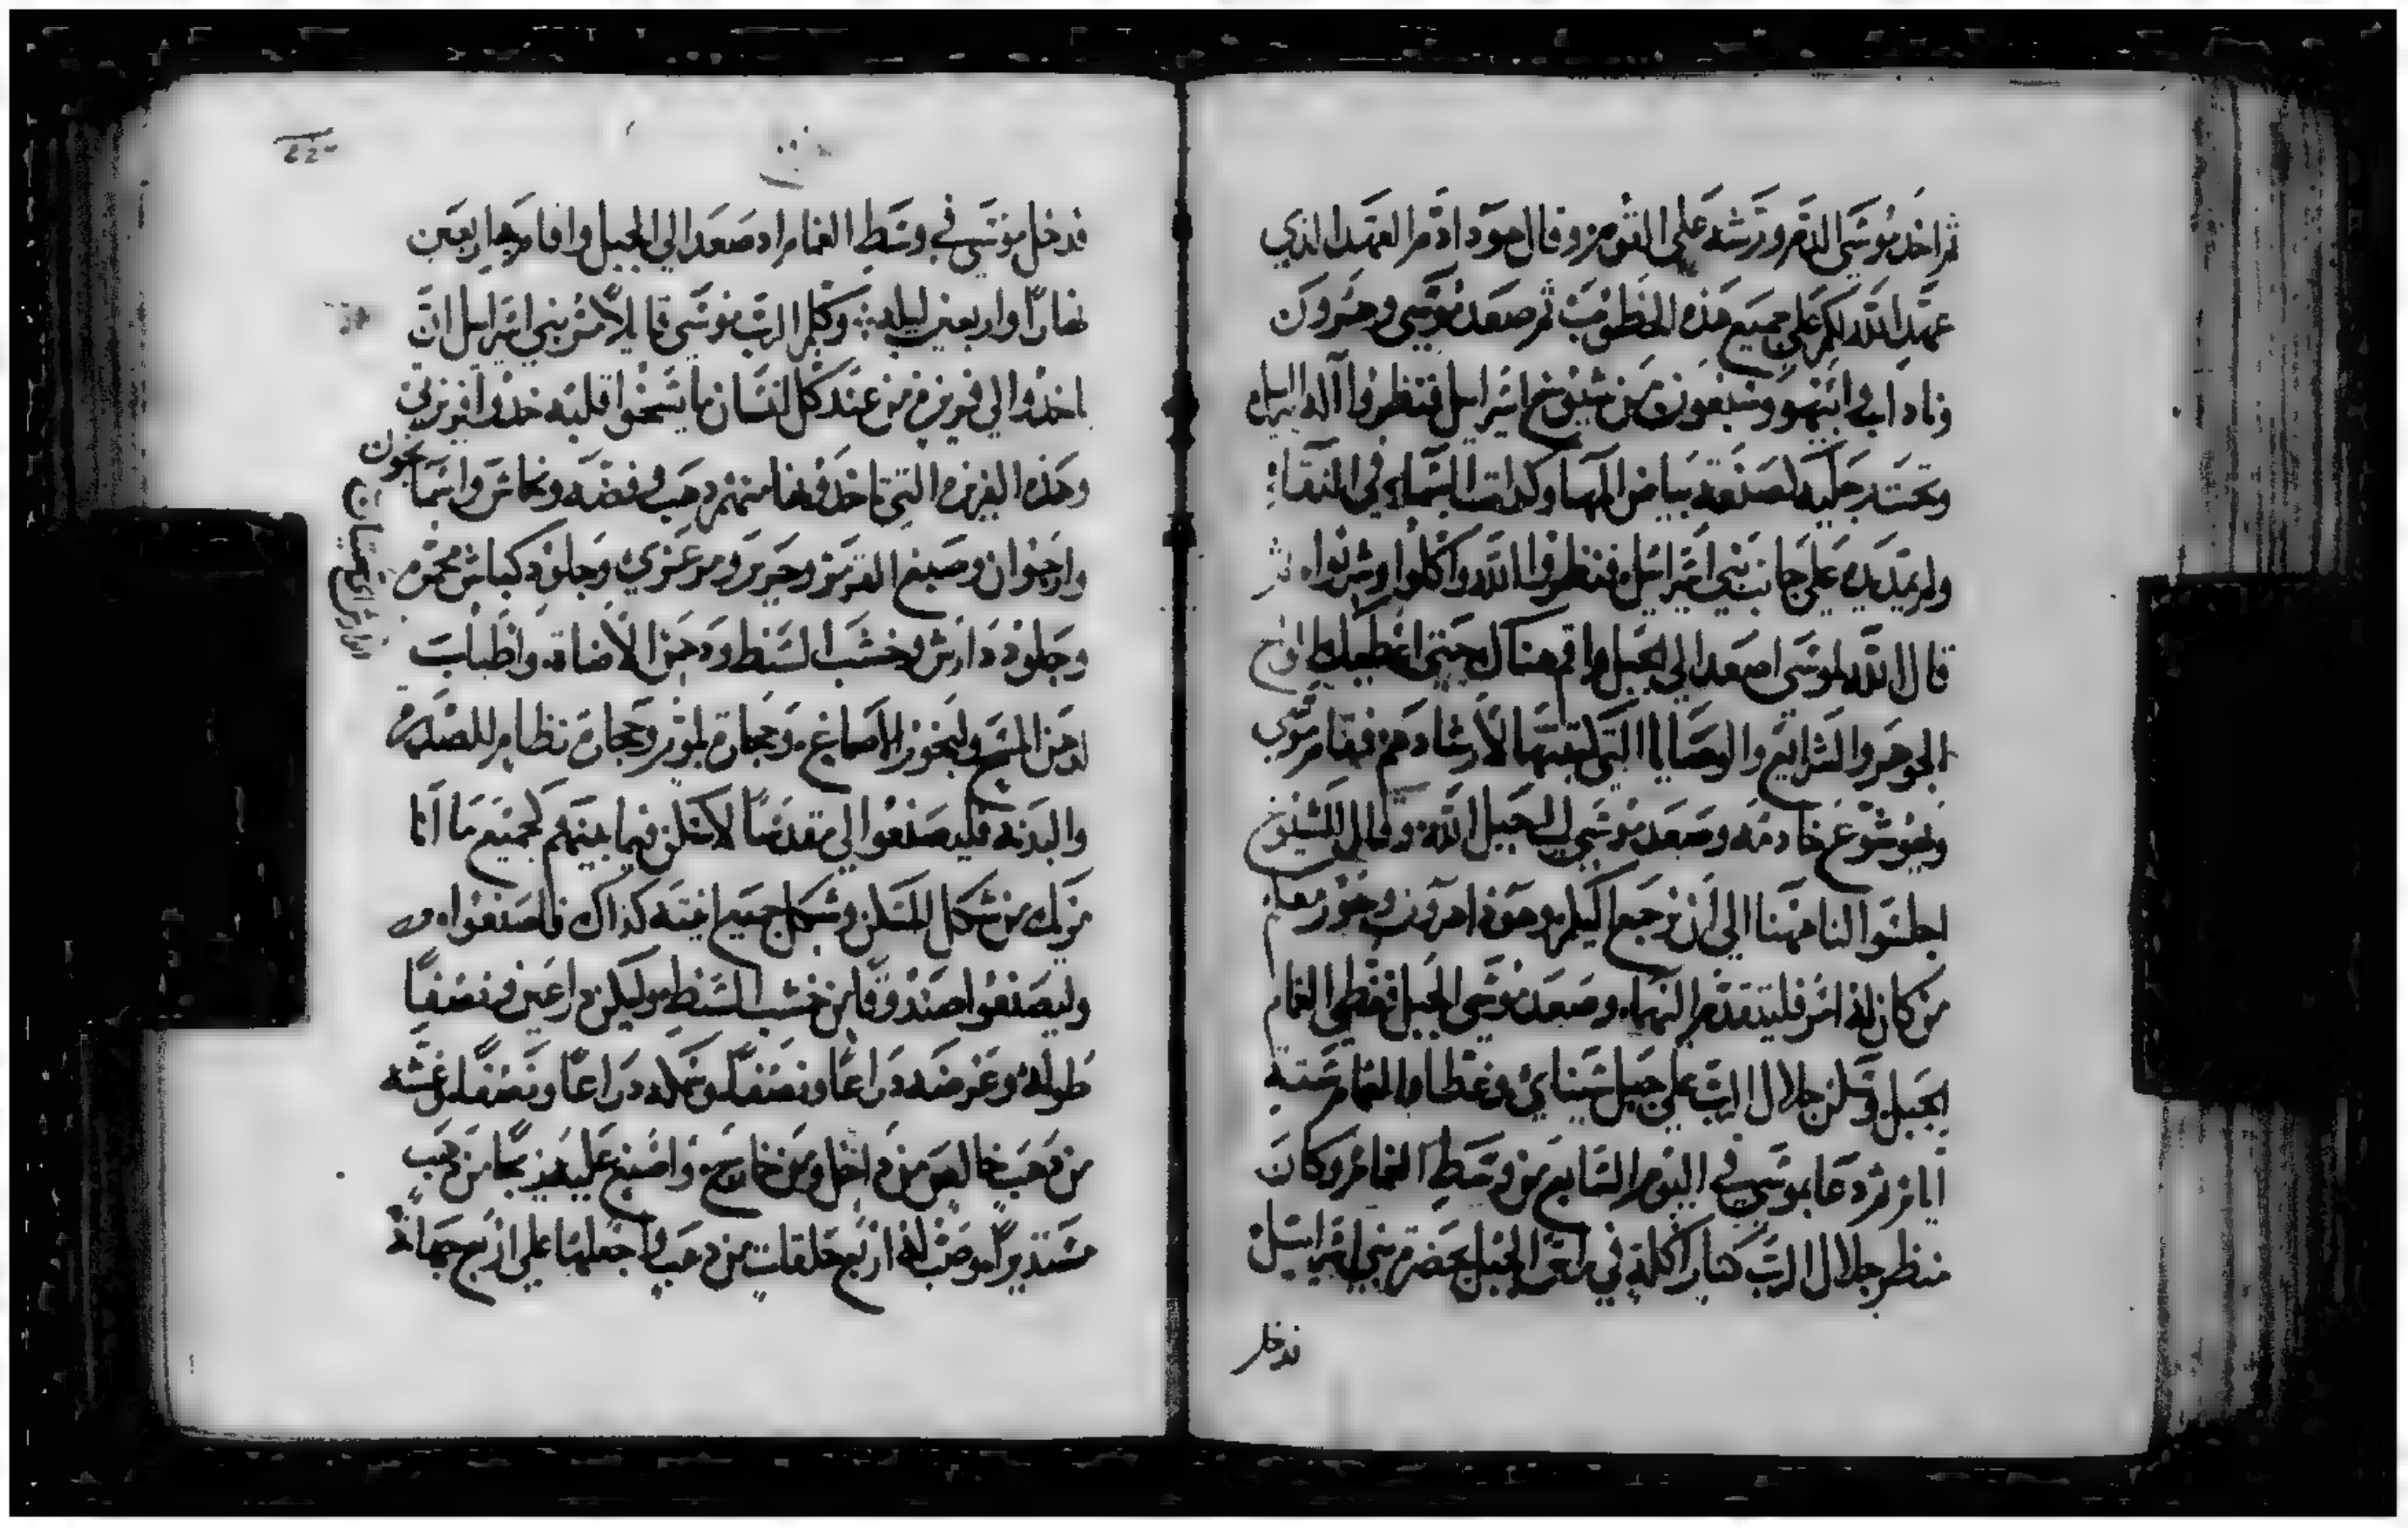 ثم اخد موسى الدم ورشه على القوم وقال هودا دم العهد الذي
عهد الله لكم على جميع هذه الخطوب ثم صعد موسى وهرون
وناداب وابيهو وسبعون من شيوخ اسراييل فنظروا اله اسراييل
وتحت رجليه لصنعة بياض المها وكذات السماء في النقاء
ولم يمد يده على جانب بني اسراييل فنظروا الله واكلوا وشربوا ثم
قال الله لموسى اصعد الي الجبل واقم هناك حتى اعطيك الواح
الجوهر والشرايع والوصايا التي كتبتها لارشادهم فقام موسى
ويوشوع خادمه وصعد موسى الى جبل الله وقال للشيوخ
اجلسوا لنا ههنا الي ان نرجع اليكم وهودا هرون وحور معكم
من كان له امر فليتقدم اليهما وصعد موسى الجبل فغطى الغمام
الجبل وسكن جلال الرب على جبل سيناي وغطاه الغمام ستة
أيام ثم دعا موسى في اليوم السابع من وسط الغمام وكان
منظر جلال الرب كنار اكلة في راس الجبل بحضرة بني اسراييل
فدخل
فدخل موسى في وسط الغمام اد صعد الي الجبل واقام بها ربعين
نهارًا واربعين ليلة وكلم الرب موسى قايلًا مر بني اسراييل ان
ياخدوا لي فريزة من عند كل انسان ما يسخوا قلبه خدوا فريزتي
وهذه الفريزة التي تاخذونها منهم دهب وفضه ونحاس واسمانجون
وارجوان وصبغ القرمز وحرير ومرعزي وجلود كباش محمرة
وجلود دارش وخشب السنط ودهن الاضاة واطياب
لدهن المسح ولبخور الاصماغ وحجارة بلور وحجارة نظام للصدرة
والبدنة فليصنعوا لي مقدسًا لاسكن فيما بينهم كجميع ما أنا
مريك من شكل المسكن وشكل جميع انيته كذاك فاصنعوا
وليصنعوا صندوقًا من خشب السنط وليكن دراعين ونصفًا
طوله وعرضه دراعًا ونصفًا وسمكه دراعًا ونصفًا وغشه
من دهب خالص من داخل ومن خارج واصنع عليه زيجا من دهب
مستديرًا وصغ له اربع حلقات من دهب واجعلها على اربع جهاته